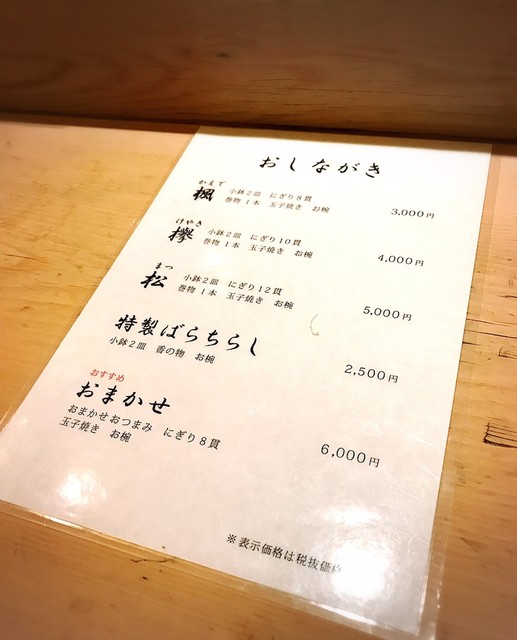 おしながき
かえで
楓 小鉢２皿 にぎり８貫
巻物１本 玉子焼き お椀
3,000円
けやき
欅 小鉢２皿 にぎり１０貫
巻物１本 玉子焼き お椀
4,000円
まつ
松 小鉢２皿 にぎり１２貫
巻物１本 玉子焼き お椀
5,000円
特製ばらちらし
小鉢２皿 香の物 お椀
2,500円
おすすめ
おまかせ
おまかせおつまみ にぎり８貫
玉子焼き お椀
6,000円
※表示価格は税抜価格